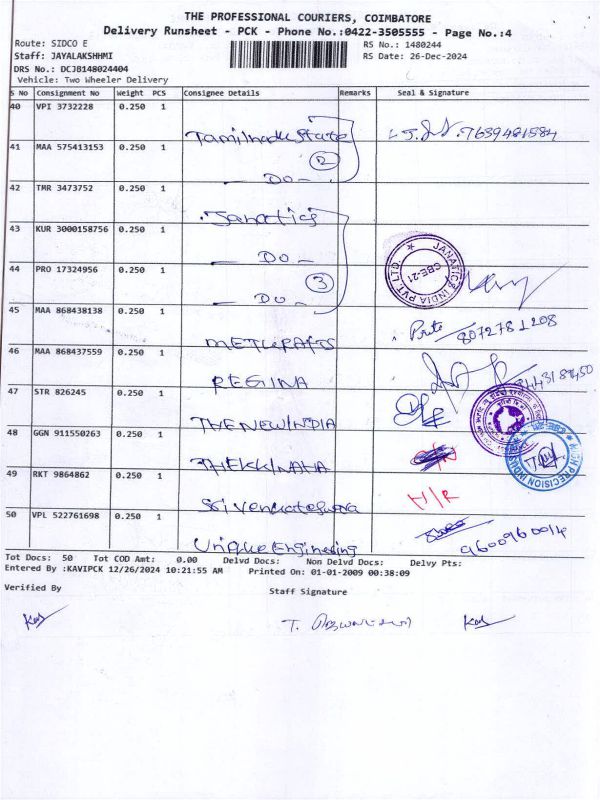 THE PROFESSIONAL COURIERS, COIMBATORE
Delivery Runsheet - PCK - Phone No.:0422-3505555 - Page No.:4
Route: SIDCO E
RS No.: 1480244
Staff: JAYALAKSHHMI
RS Date: 26-Dec-2024
DRS No.: DCJB148024404
Vehicle: Two Wheeler Delivery
S No Consignment No Weight PCS Consignee Details Remarks Seal & Signature
40 VPI 3732228 0.250 1
Tamilnadu State 7639481584
41 MAA 575413153 0.250 1
2
- Do -
42 TMR 3473752 0.250 1
Janatics
43 KUR 3000158756 0.250 1
- Do -
JANATICS INDIA PVT. LTD. CBE-21
44 PRO 17324956 0.250 1
3
- Do -
45 MAA 868438138 0.250 1
METCRAFTS 8072781208
46 MAA 868437559 0.250 1
REGINA
47 STR 826245 0.250 1
THE NEW INDIA
48 GGN 911550263 0.250 1
PRECISION
THEKKINAHA
49 RKT 9864862 0.250 1
H/R
Sri Venkateswara
50 VPL 522761698 0.250 1
Unique Engineering 9600960014
Tot Docs: 50 Tot COD Amt: 0.00 Delvd Docs: Non Delvd Docs: Delvy Pts:
Entered By :KAVIPCK 12/26/2024 10:21:55 AM Printed On: 01-01-2009 00:38:09
Verified By
Staff Signature